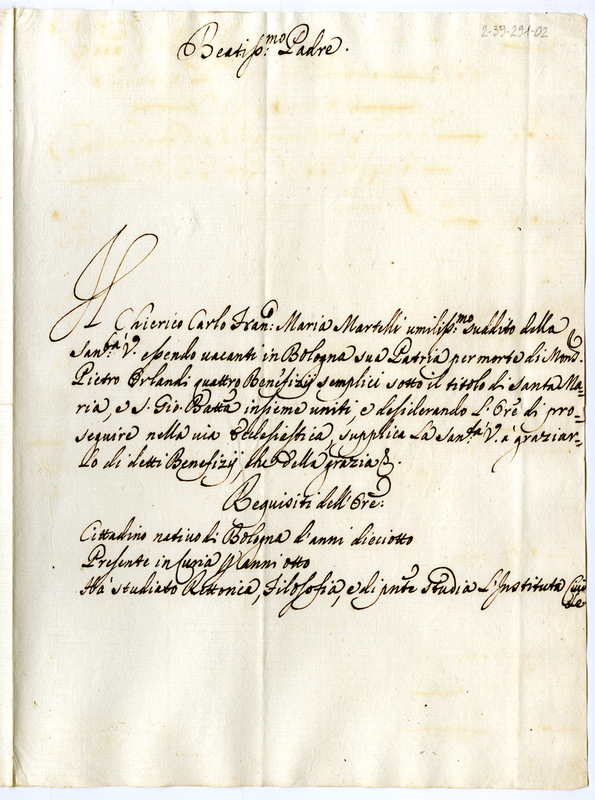 2-39-291-02
Beatiss:mo Padre.
Il Chierico Carlo Fran: Maria Martelli umiliss:mo suddito della
San:tà V. essendo vacanti in Bologna sua Patria per morte di Mons.
Pietro Orlandi quattro Benefizij semplici sotto il titolo di Santa Ma=
ria, e S. Gio: Batta insieme uniti, e desiderando L'Ore di pro=
seguire nella via Ecclesiestica, supplica La San:tà V. à graziar=
lo di detti Benefizij, che della grazia &.
Requisiti dell'Ore:
Cittadino nativo di Bologna d'anni dieciotto
Presente in Curia p anni otto
Hà studiato Rettorica, Filosofia, e di pnte studia L'Instituta Civi
le